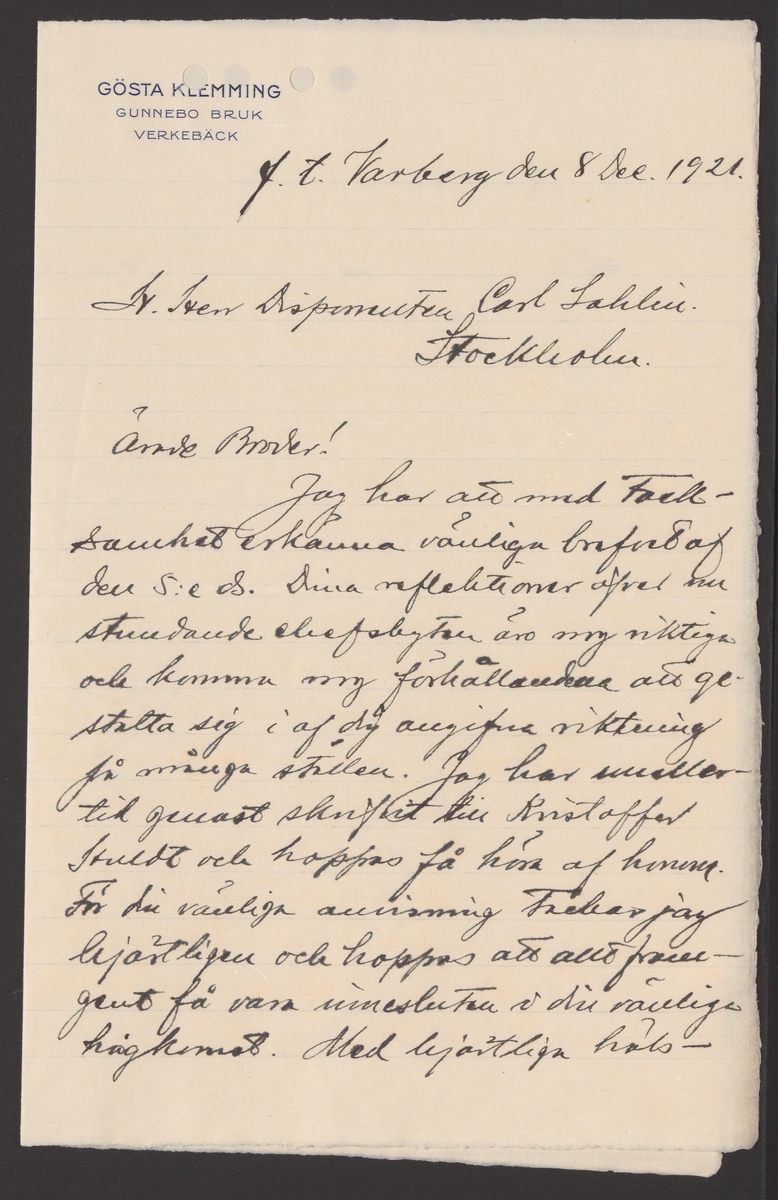 GÖSTA KLEMMING
GUNNEBO BRUK
VERKEBÄCK
f. t. Varberg den 8 Dec. 1921.
H. Herr Disponenten Carl Sahlin.
Stockholm.
Ärade Broder!
Jag har att med tack-
samhet erkänna vänliga brefvet af
den 5:e ds. Dina reflektioner öfver nu
stundande chefsbyten äro nog riktiga
och komma nog förhållandena att ge-
stalta sig i af dig angifna riktning
på många ställen. Jag har emeller-
tid genast skrifvit till Kristoffer
Huldt och hoppas få höra af honom.
För din vänliga anvisning tackar jag
hjärtligen och hoppas att allt fram-
gent få vara innesluten i din vänliga
hågkomst. Med hjärtliga häls-